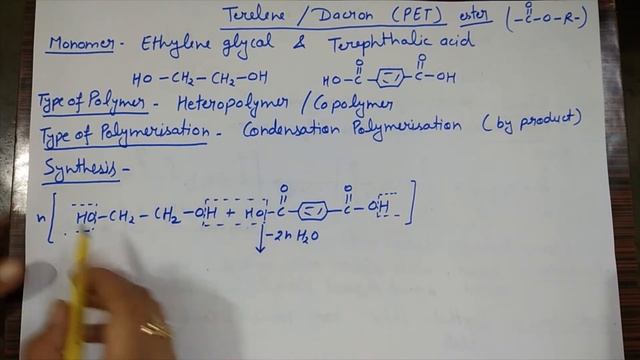 Terelene / Dacron (PET) ester (-C-O-R-)
O
||
Monomer - Ethylene glycol & Terephthalic acid
HO-CH2-CH2-OH HO-C-C-OH
O O
|| ||
Type of Polymer - Heteropolymer / Copolymer
Type of Polymerisation - Condensation Polymerisation (by product)
Synthesis -
n [ HO-CH2-CH2-OH + HO-C-C-OH ]
O O
|| ||
-2n H2O